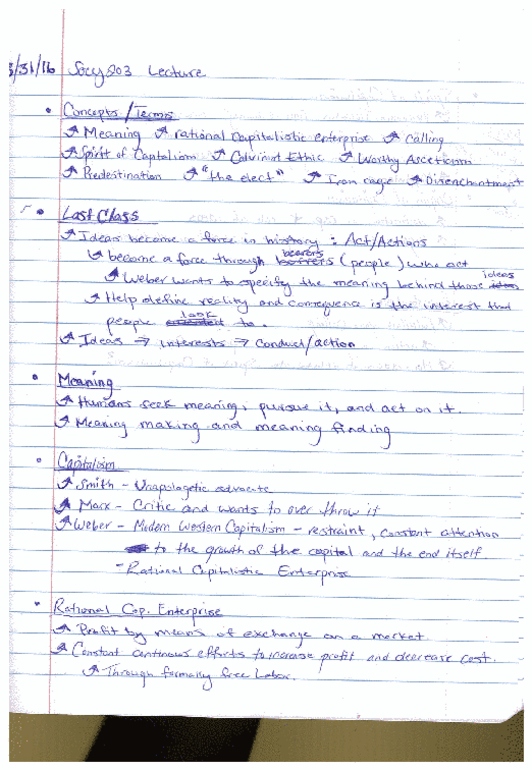 3/31/16 Socy 203 Lecture
• Concepts/Terms
↗ Meaning ↗ rational Capitalistic enterprise ↗ Calling
↗ Spirit of Captalism ↗ Calvinist Ethic ↗ Worthy Asceticism
↗ Predestination ↗ "the elect" ↗ Iron cage ↗ Disenchantment
• Last Class
↗ Ideas become a force in history : Act/Actions
↳ become a force through bearers (people) who act
↗ Weber wants to specify the meaning behind those ideas
↗ Help define reality and consequence is the interest that
people look to.
↗ Ideas → interests → Conduct/action
• Meaning
↗ Humans seek meaning, pursue it, and act on it.
↗ Meaning making and meaning finding
• Capitalism
↗ Smith - Unapologetic advocate
↗ Marx - Critic and wants to over throw it
↗ Weber - Modern Western Capitalism - restraint, constant attention
to the growth of the capital and the end itself
- Rational Capitalistic Enterprise
• Rational Cap. Enterprise
↗ Profit by means of exchange on a market.
↗ Constant continous efforts to increase profit and decrease cost.
↗ Through formally free Labor.